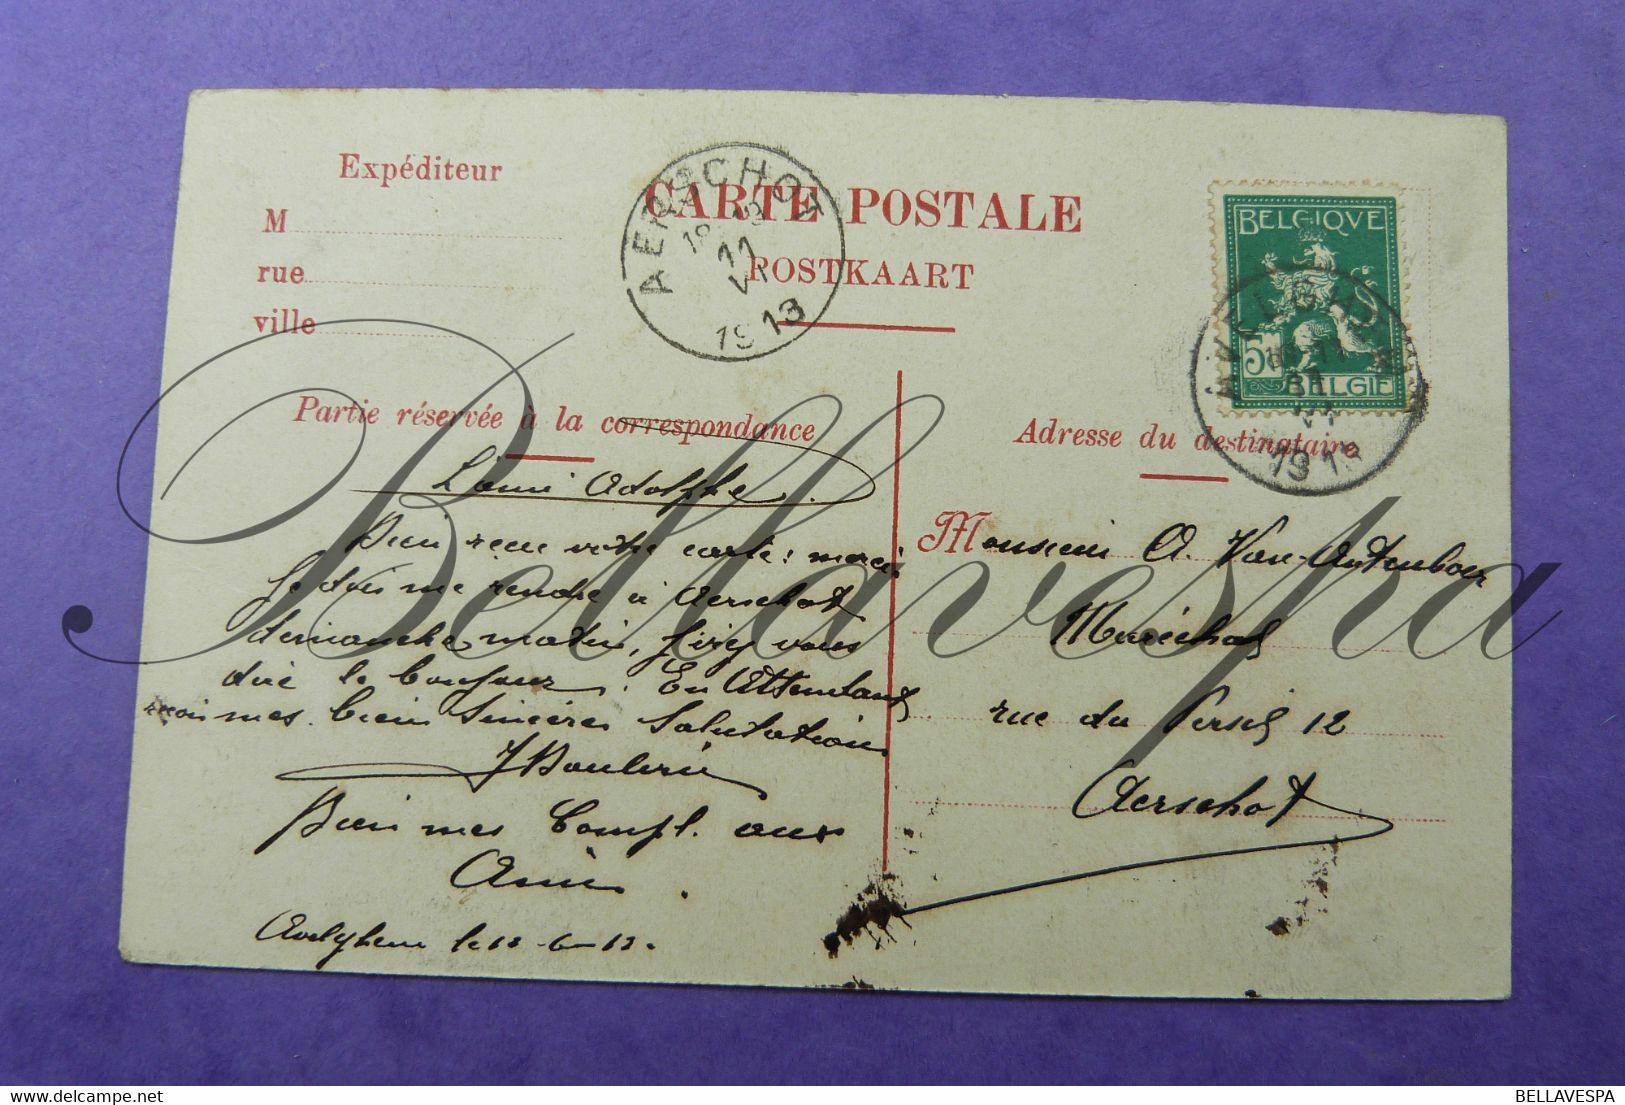 Expéditeur
M
rue
ville
CARTE POSTALE
POSTKAART
AERSCHOT
11
VI
1913
BELGIQVE
5
BELGIE
AVELGHEM
11
VI
1913
Partie réservée à la correspondance
Adresse du destinataire
L'ami Adolphe.
Bien reçu votre carte; merci
Je dois me rendre à Aerschot
demanche matin, j'irez vous
dire le bonjour. En attendant
recois mes bien Sincères Salutations
Bien mes Compl. aux
Amis.
Avelghem le 10-6-13.
Monsieur A. Van-Autenboer
Maréchal
rue du Persil 12
Aerschot
Bellavespa
BELLAVESPA